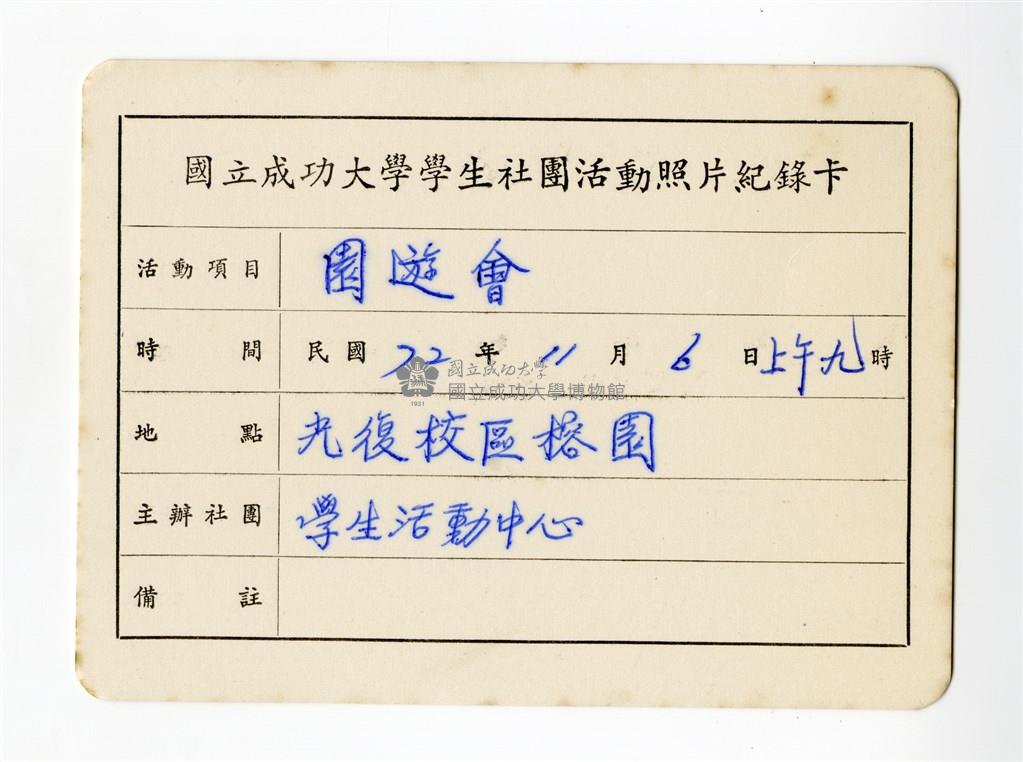 國立成功大學學生社團活動照片紀錄卡
活動項目 園遊會
時間 民國 72 年 11 月 6 日 上午九時
國立成功大學
國立成功大學博物館
1931
地點 光復校區榕園
主辦社團 學生活動中心
備註